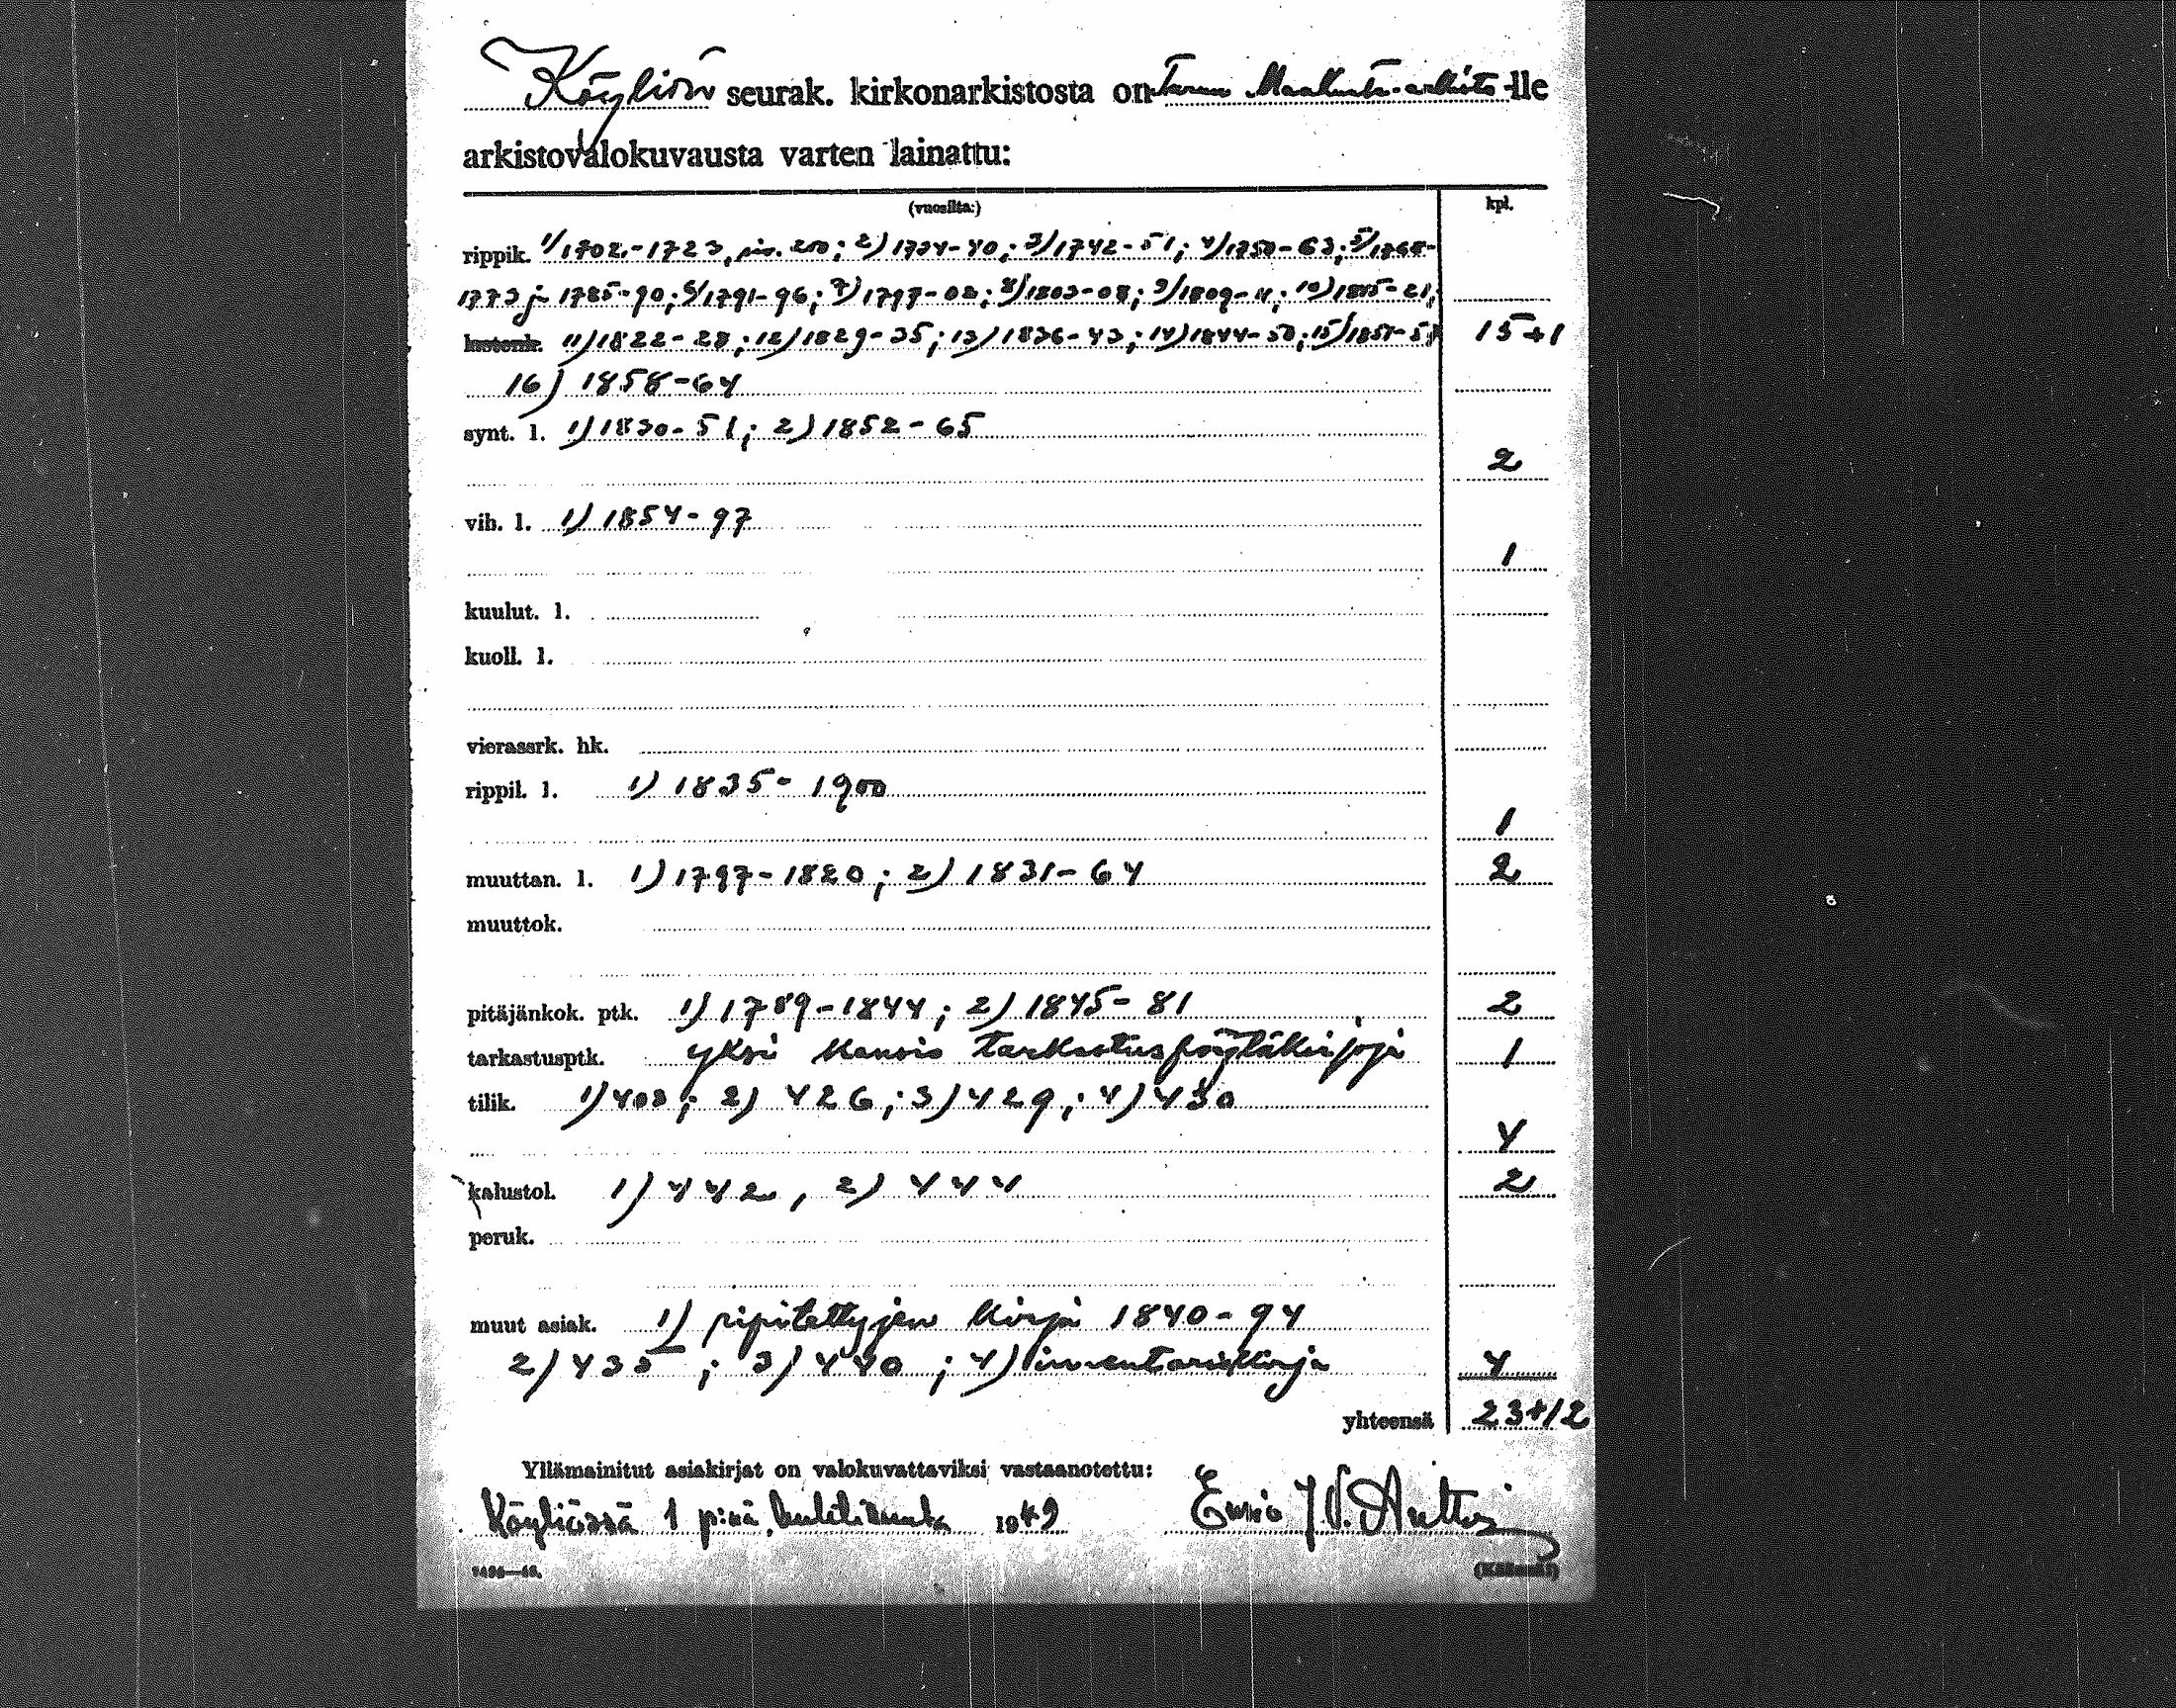 Köyliön seurak. kirkonarkistosta on Turun Maakunta-arkisto-lle
arkistovalokuvausta varten lainattu:
(vuosilta:) kpl.
rippik. 1/1702-1723, siv. 200; 2) 1724-40; 3/1742-51; 4/1750-63; 5/1765-
1773 j 1785-90; 6/1791-96; 7) 1797-02; 8/1803-08; 9/1809-14; 10) 1815-21;
lastenk. 11) 1822-28; 12) 1829-35; 13) 1836-43; 14) 1844-50; 15) 1851-57 15+1
16) 1858-64
synt. l. 1) 1830-51; 2) 1852-65
2
vih. l. 1) 1854-97
1
kuulut. l.
kuoll. l.
vierassrk. hk.
rippil. l. 1) 1835-1900
1
muuttan. l. 1) 1797-1820; 2) 1831-64 2
muuttok.
pitäjänkok. ptk. 1) 1789-1844; 2) 1845-81 2
tarkastusptk. yksi kansio tarkastuspöytäkirjoja 1
tilik. 1) 403; 2) 426; 3) 429; 4) 430
4
kalustol. 1) 442, 2) 444 2
peruk.
muut asiak. 1) ripitettyjen kirja 1840-94
2) 435; 3) 440; 4) inventariokirja 4
yhteensä 23+12
Yllämainitut asiakirjat on valokuvattaviksi vastaanotettu:
Köyliössä 1 p:nä huhtikuuta 1949 Eino J. V.